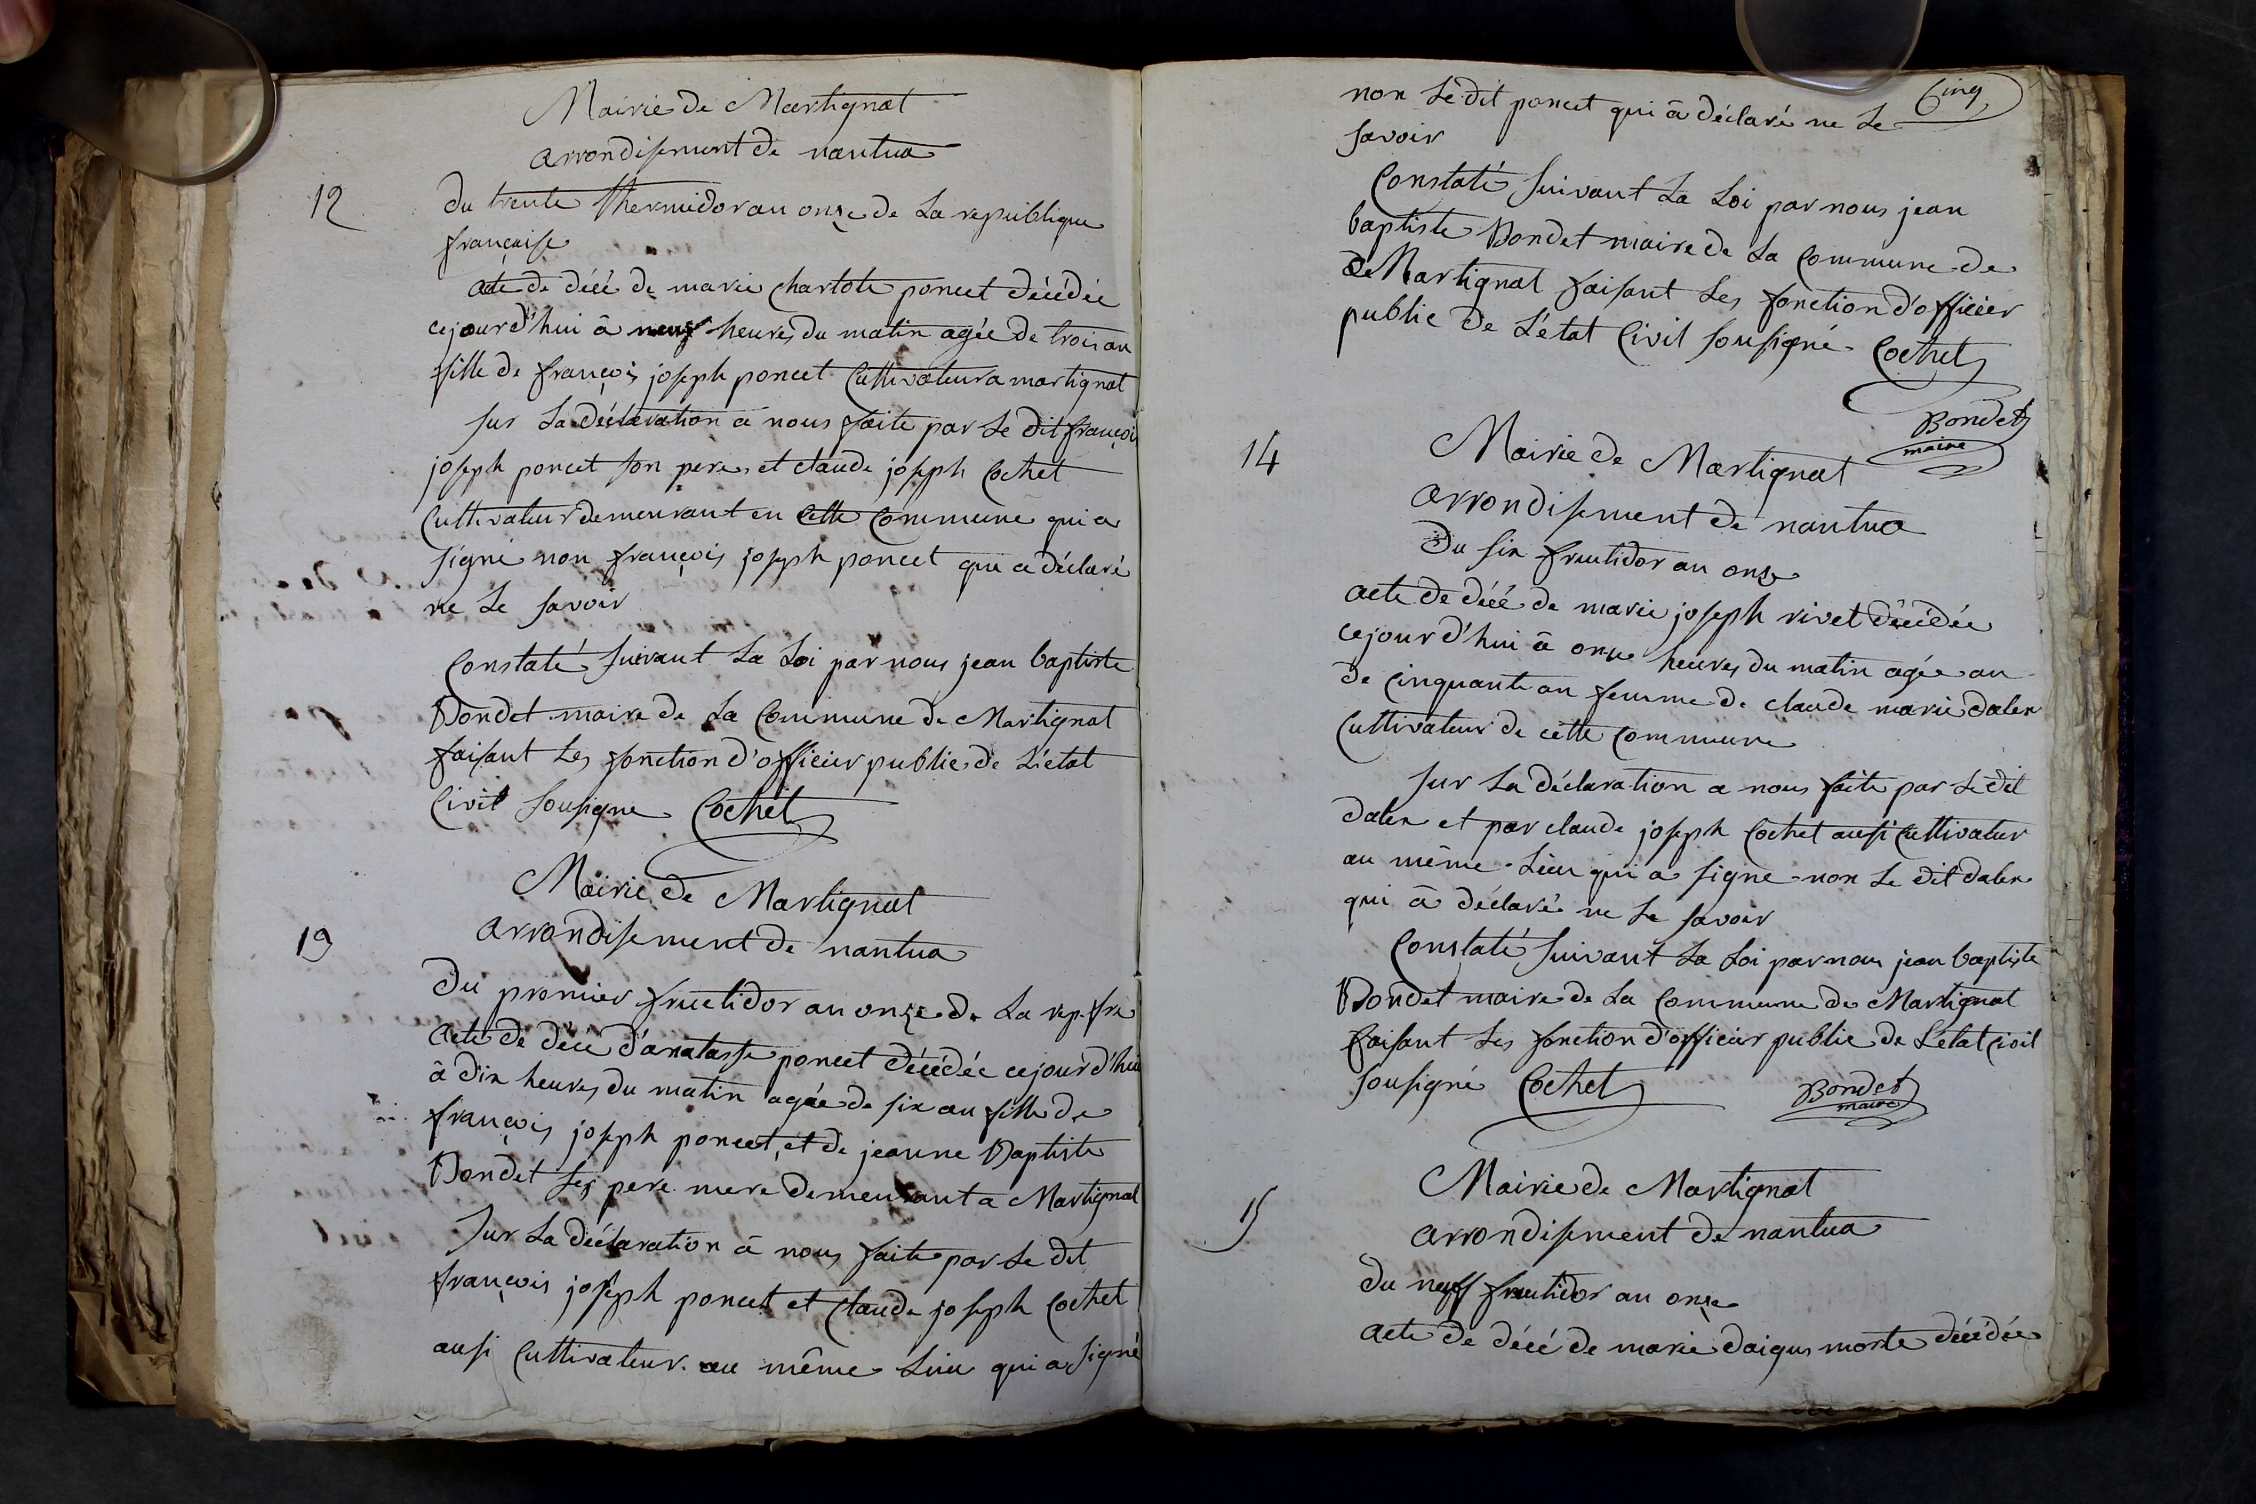 Mairie de Martignat
arrondisement de nantua
12
du trente thermidor an onze de La republique
française
acte de décé de marie charlote poncet décédée
cejourd'hui à neuf heures du matin agée de trois an
fille de françois joseph poncet Cultivateur a martignat
sur La déclaration a nous faite par Le dit françois
joseph poncet son pere et claude joseph Cochet
Cultivateur demeurant en Cette Commune qui a
signé non françois joseph poncet qui a déclaré
ne Le savoir
Constaté suivant La Loi par nous jean baptiste
Bondet maire de La Commune de Martignat
faisant Les fonction d'officier public de L'etat
Civil sousigne Cochet
Mairie de Martignat
arrondisement de nantua
13
Du premier fructidor an onze de La rep. fra
acte de décé d'anatasse poncet décédée cejourd'hui
à dix heures du matin agée de six an fille de
françois joseph poncet, et de jeanne Baptiste
Bondet ses pere mere demeurant a Martignat
sur La déclaration à nous faite par Le dit
françois joseph poncet et Claude joseph Cochet
ausi Cultivateur au même Lieu qui a signé
Cinq
non Le dit poncet qui à déclaré ne Le
savoir
Constaté suivant La Loi par nous jean
baptiste Bondet maire de La Commune de
de Martignat faisant Les fonction d'officier
public de L'état Civil sousigné Cochet
Bondet
maire
14
Mairie de Martignat
arrondisement de nantua
Du six fructidor an onze
acte de décé de marie joseph rivet décédée
cejourd'hui à onze heures du matin agée an
de cinquante an femme de claude marie dalex
Cultivateur de cette Commune
sur La déclaration a nous faite par Le dit
dalex et par claude joseph Cochet ausi Cultivatur
au même Lieu qui a signe non Le dit dalex
qui à déclaré ne Le savoir
Constaté suivant La Loi par nous jean baptiste
Bondet maire de La Commune de Martignat
faisant Les fonction d'officier public de L'état civil
sousigné Cochet Bondet
maire
15
Mairie de Martignat
arrondisement de nantua
du neuff fructidor an onze
acte de décé de marie daigus morte décédée